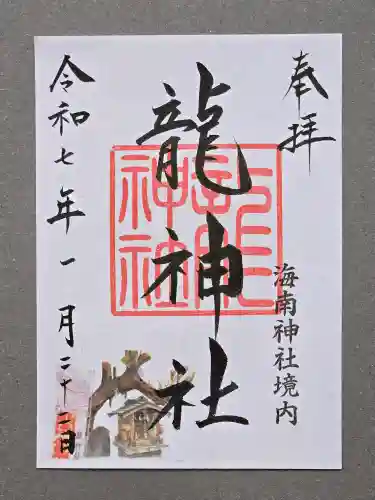 奉拝
海南神社境内
龍神社
令和七年一月二十二日